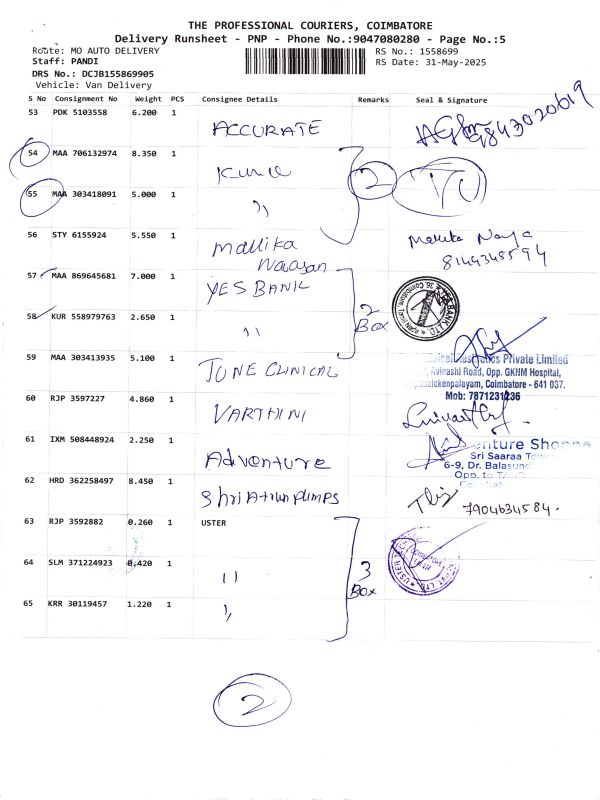 THE PROFESSIONAL COURIERS, COIMBATORE
Delivery Runsheet - PNP - Phone No.:9047080280 - Page No.:5
Route: MO AUTO DELIVERY RS No.: 1558699
Staff: PANDI RS Date: 31-May-2025
DRS No.: DCJB155869905
Vehicle: Van Delivery
S No Consignment No Weight PCS Consignee Details Remarks Seal & Signature
53 PDK 5103558 6.200 1 ACCURATE 9843020619
54 MAA 706132974 8.350 1 2
55 MAA 303418091 5.000 1 ''
56 STY 6155924 5.550 1 Mallika 8144348594
57 MAA 869645681 7.000 1 YES BANK 2 Box
58 KUR 558979763 2.650 1 ''
59 MAA 303413935 5.100 1 JUNE CLINICAL
Private Limited
Avinashi Road, Opp. GKNM Hospital,
Coimbatore - 641 037.
Mob: 7871231236
60 RJP 3597227 4.860 1 VARTHINI
61 IXM 508448924 2.250 1 Adventure
enture Shopp
Sri Saaraa
6-9, Dr. Balasund
Opp. to
62 HRD 362258497 8.450 1 Shri Athun pumps 7904634584.
63 RJP 3592882 0.260 1 USTER
64 SLM 371224923 0.420 1 '' 3 Box
65 KRR 30119457 1.220 1 ''
2